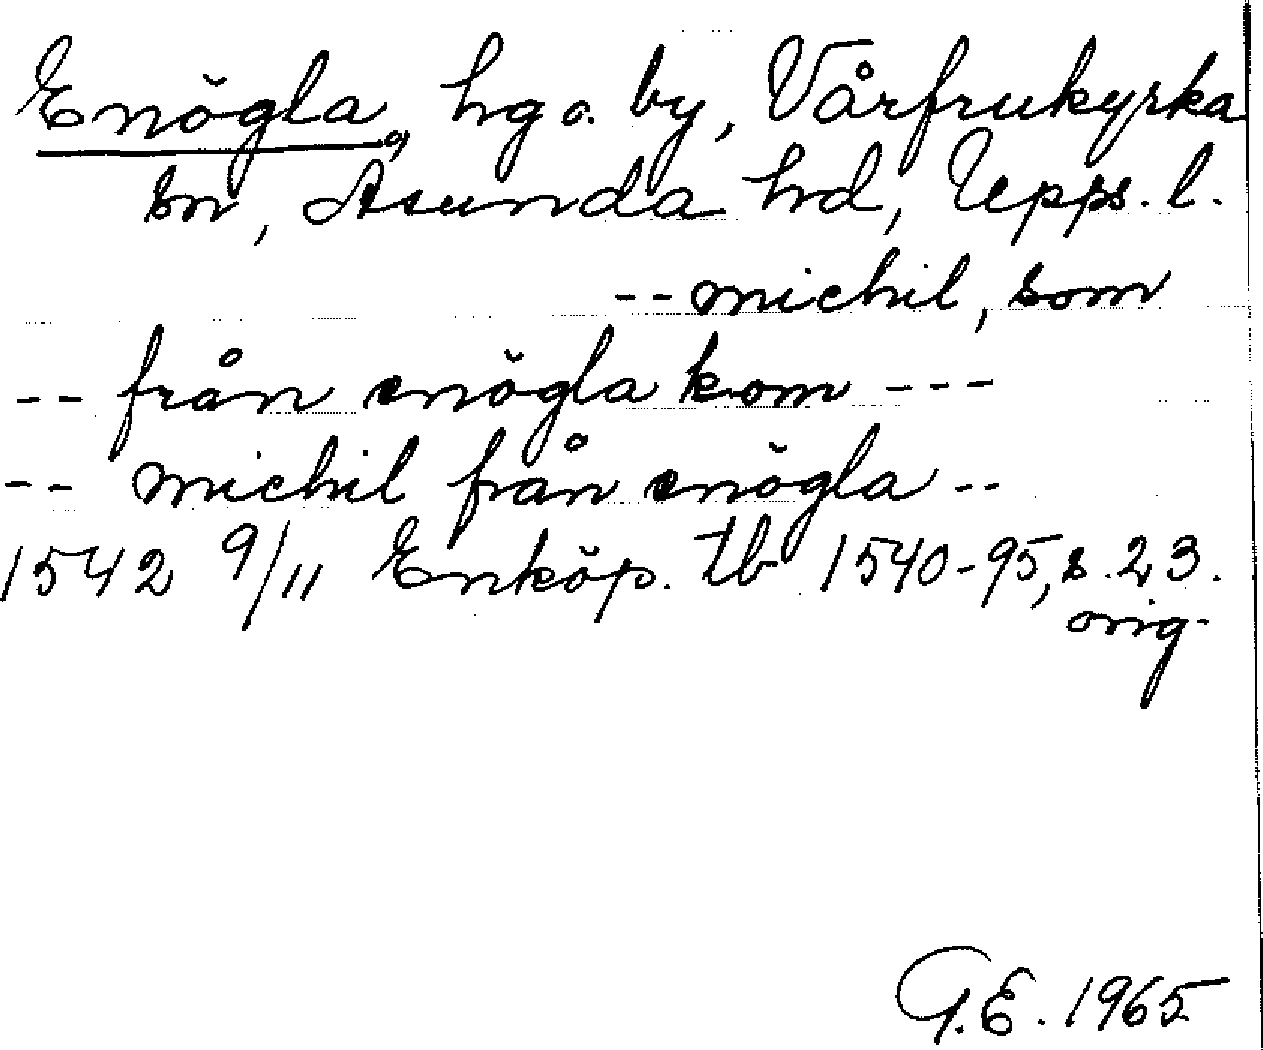 Enögla, hg o. by, Vårfrukyrka
sn, Åsunda hd, Upps. l.
-- michil, som
-- från enögla kom ---
-- michil från enögla --
1542 9/11 Enköp. tb 1540-95, s. 23.
orig.
G.E. 1965